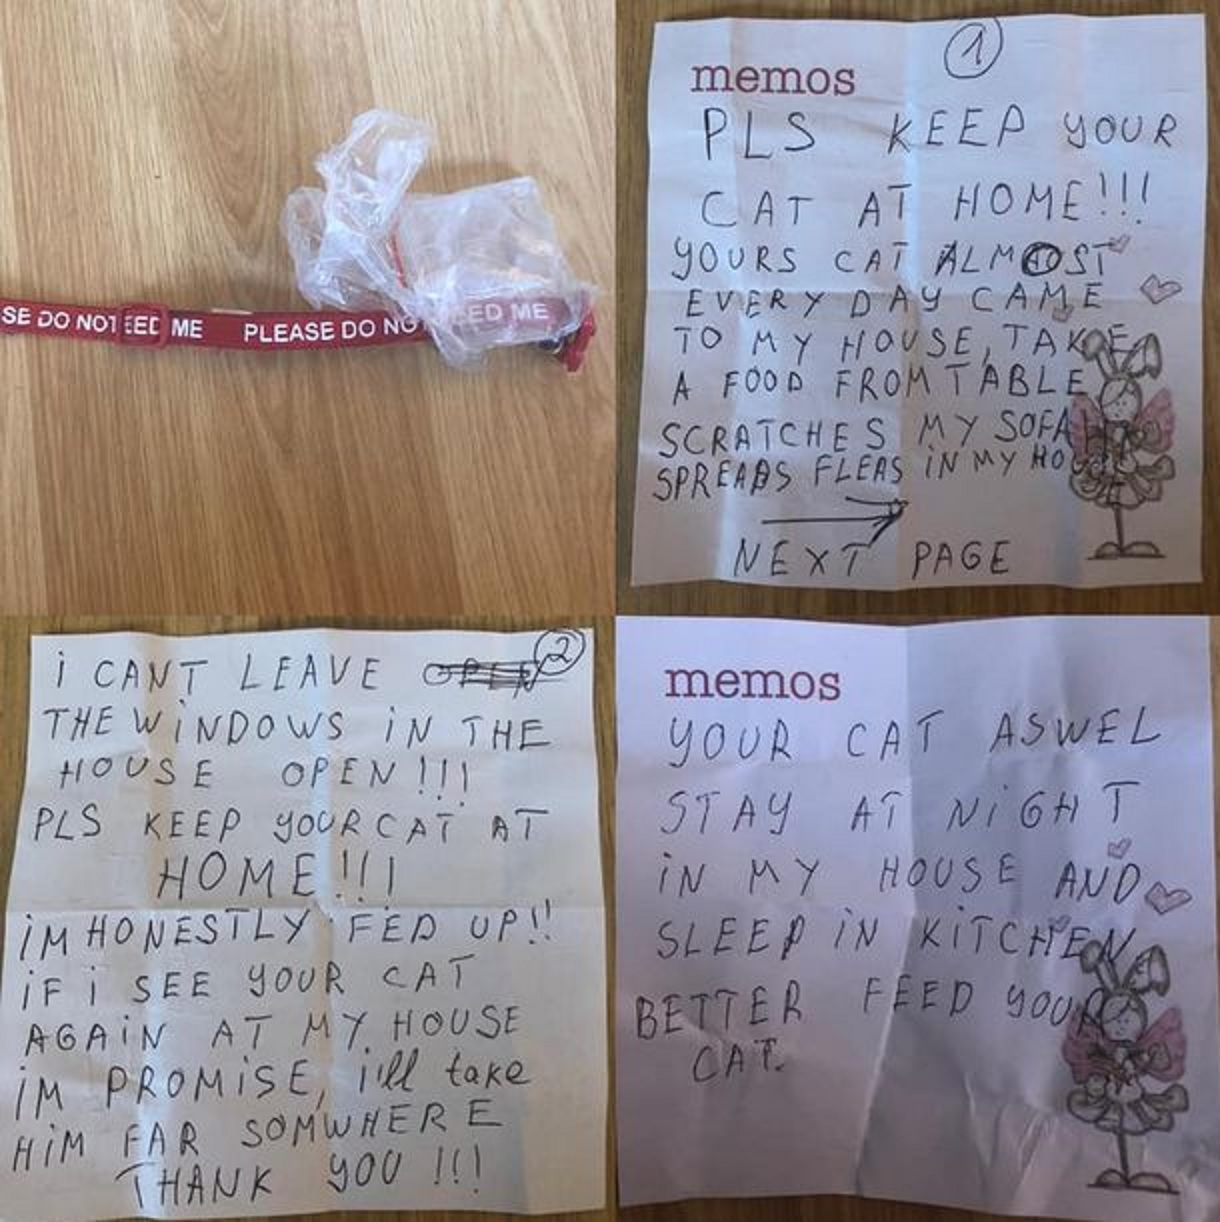 SE DO NOT EED ME PLEASE DO NOT EED ME
1
memos
PLS KEEP YOUR
CAT AT HOME!!!
YOURS CAT ALMOST
EVERY DAY CAME
TO MY HOUSE, TAKE
A FOOD FROM TABLE
SCRATCHES MY SOFA
SPREADS FLEAS iN MY HO
NEXT PAGE
2
i CANT LEAVE
THE WiNDOWS iN THE
HOUSE OPEN!!!
PLS KEEP YOUR CAT AT
HOME!!!
iM HONESTLY FED UP!!
iF i SEE YOUR CAT
AGAiN AT MY HOUSE
iM PROMiSE, i'll take
HiM FAR SOMWHERE
THANK YOU !!!
memos
YOUR CAT ASWEL
STAY AT NiGHT
iN MY HOUSE AND
SLEEP iN KiTCHEN
BETTER FEED YOUR
CAT.